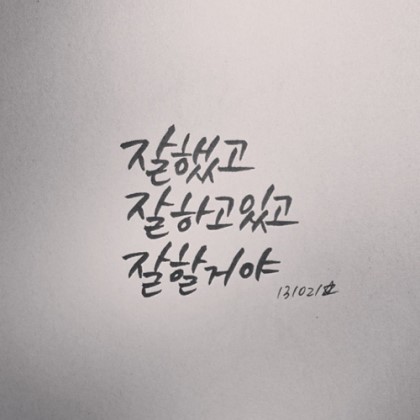 잘했고
잘하고있고
잘할거야
131021